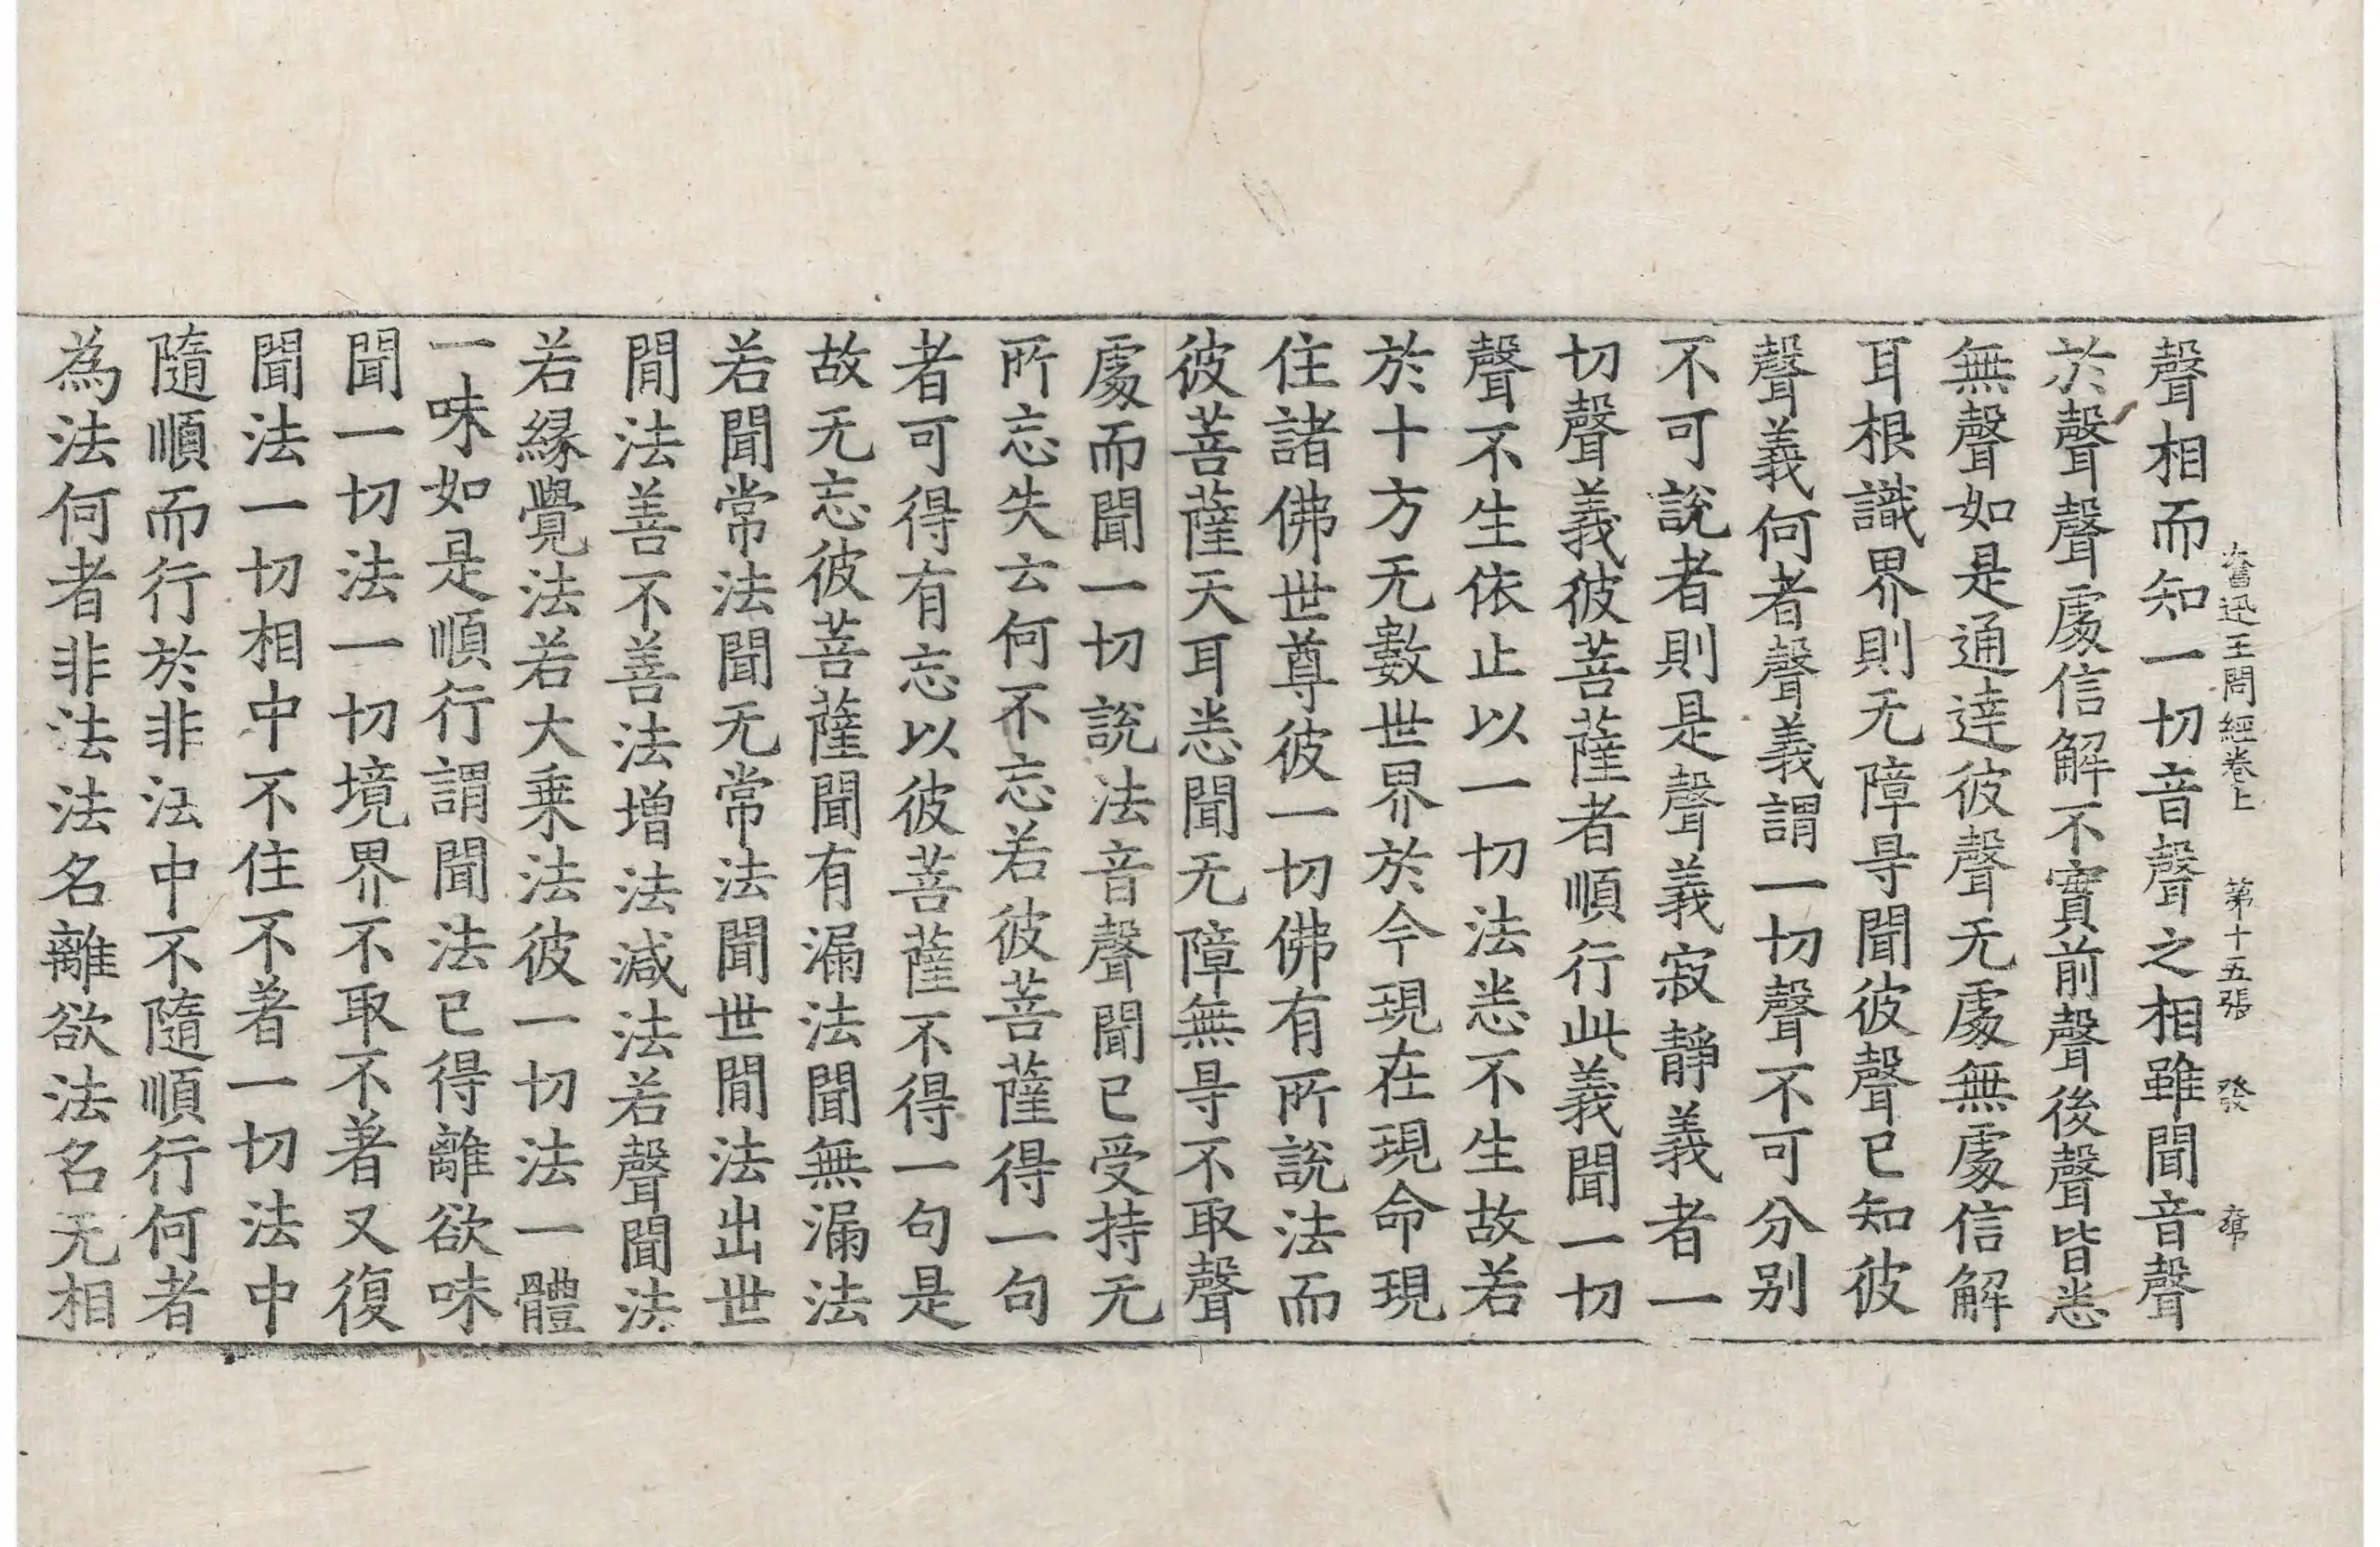 奮迅王問經卷上 第十五張 發
聲相而知一切音聲之相雖聞音聲
於聲聲處信解不實前聲後聲皆悉
無聲如是通達彼聲无處無處信解
耳根識界則无障㝵聞彼聲已知彼
聲義何者聲義謂一切聲不可分别
不可說者則是聲義寂靜義者一
切聲義彼菩薩者順行此義聞一切
聲不生依止以一切法悉不生故若
於十方无數世界於今現在現命現
住諸佛世尊彼一切佛有所說法而
彼菩薩天耳悉聞无障無㝵不取聲
處而聞一切說法音聲聞已受持无
所忘失云何不忘若彼菩薩得一句
者可得有忘以彼菩薩不得一句是
故无忘彼菩薩聞有漏法聞無漏法
若聞常法聞无常法聞世間法出世
間法善不善法增法減法若聲聞法
若緣覺法若大乗法彼一切法一體
一味如是順行謂聞法已得離欲味
聞一切法一切境界不取不著又復
聞法一切相中不住不著一切法中
隨順而行於非法中不隨順行何者
為法何者非法法名離欲法名无相